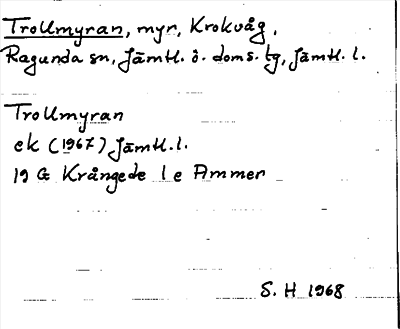 Trollmyran, myr, Krokvåg,
Ragunda sn, Jämtl. ö. doms. tg, Jämtl. l.
Trollmyran
ek (1967) Jämtl. l.
19 G Krångede 1 e Ammer
S. H 1968